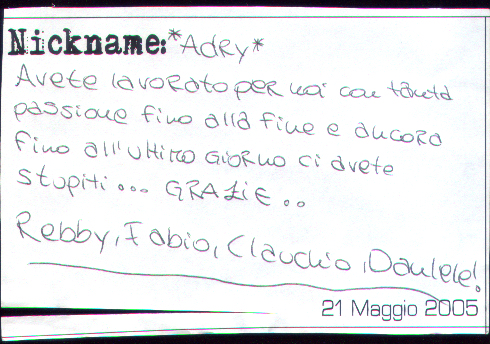 Nickname: *Adry*
Avete lavorato per noi con tanta
passione fino alla fine e ancora
fino all'ultimo giorno ci avete
stupiti... GRAZIE..
Rebby, Fabio, Claudio, Daniele!
21 Maggio 2005